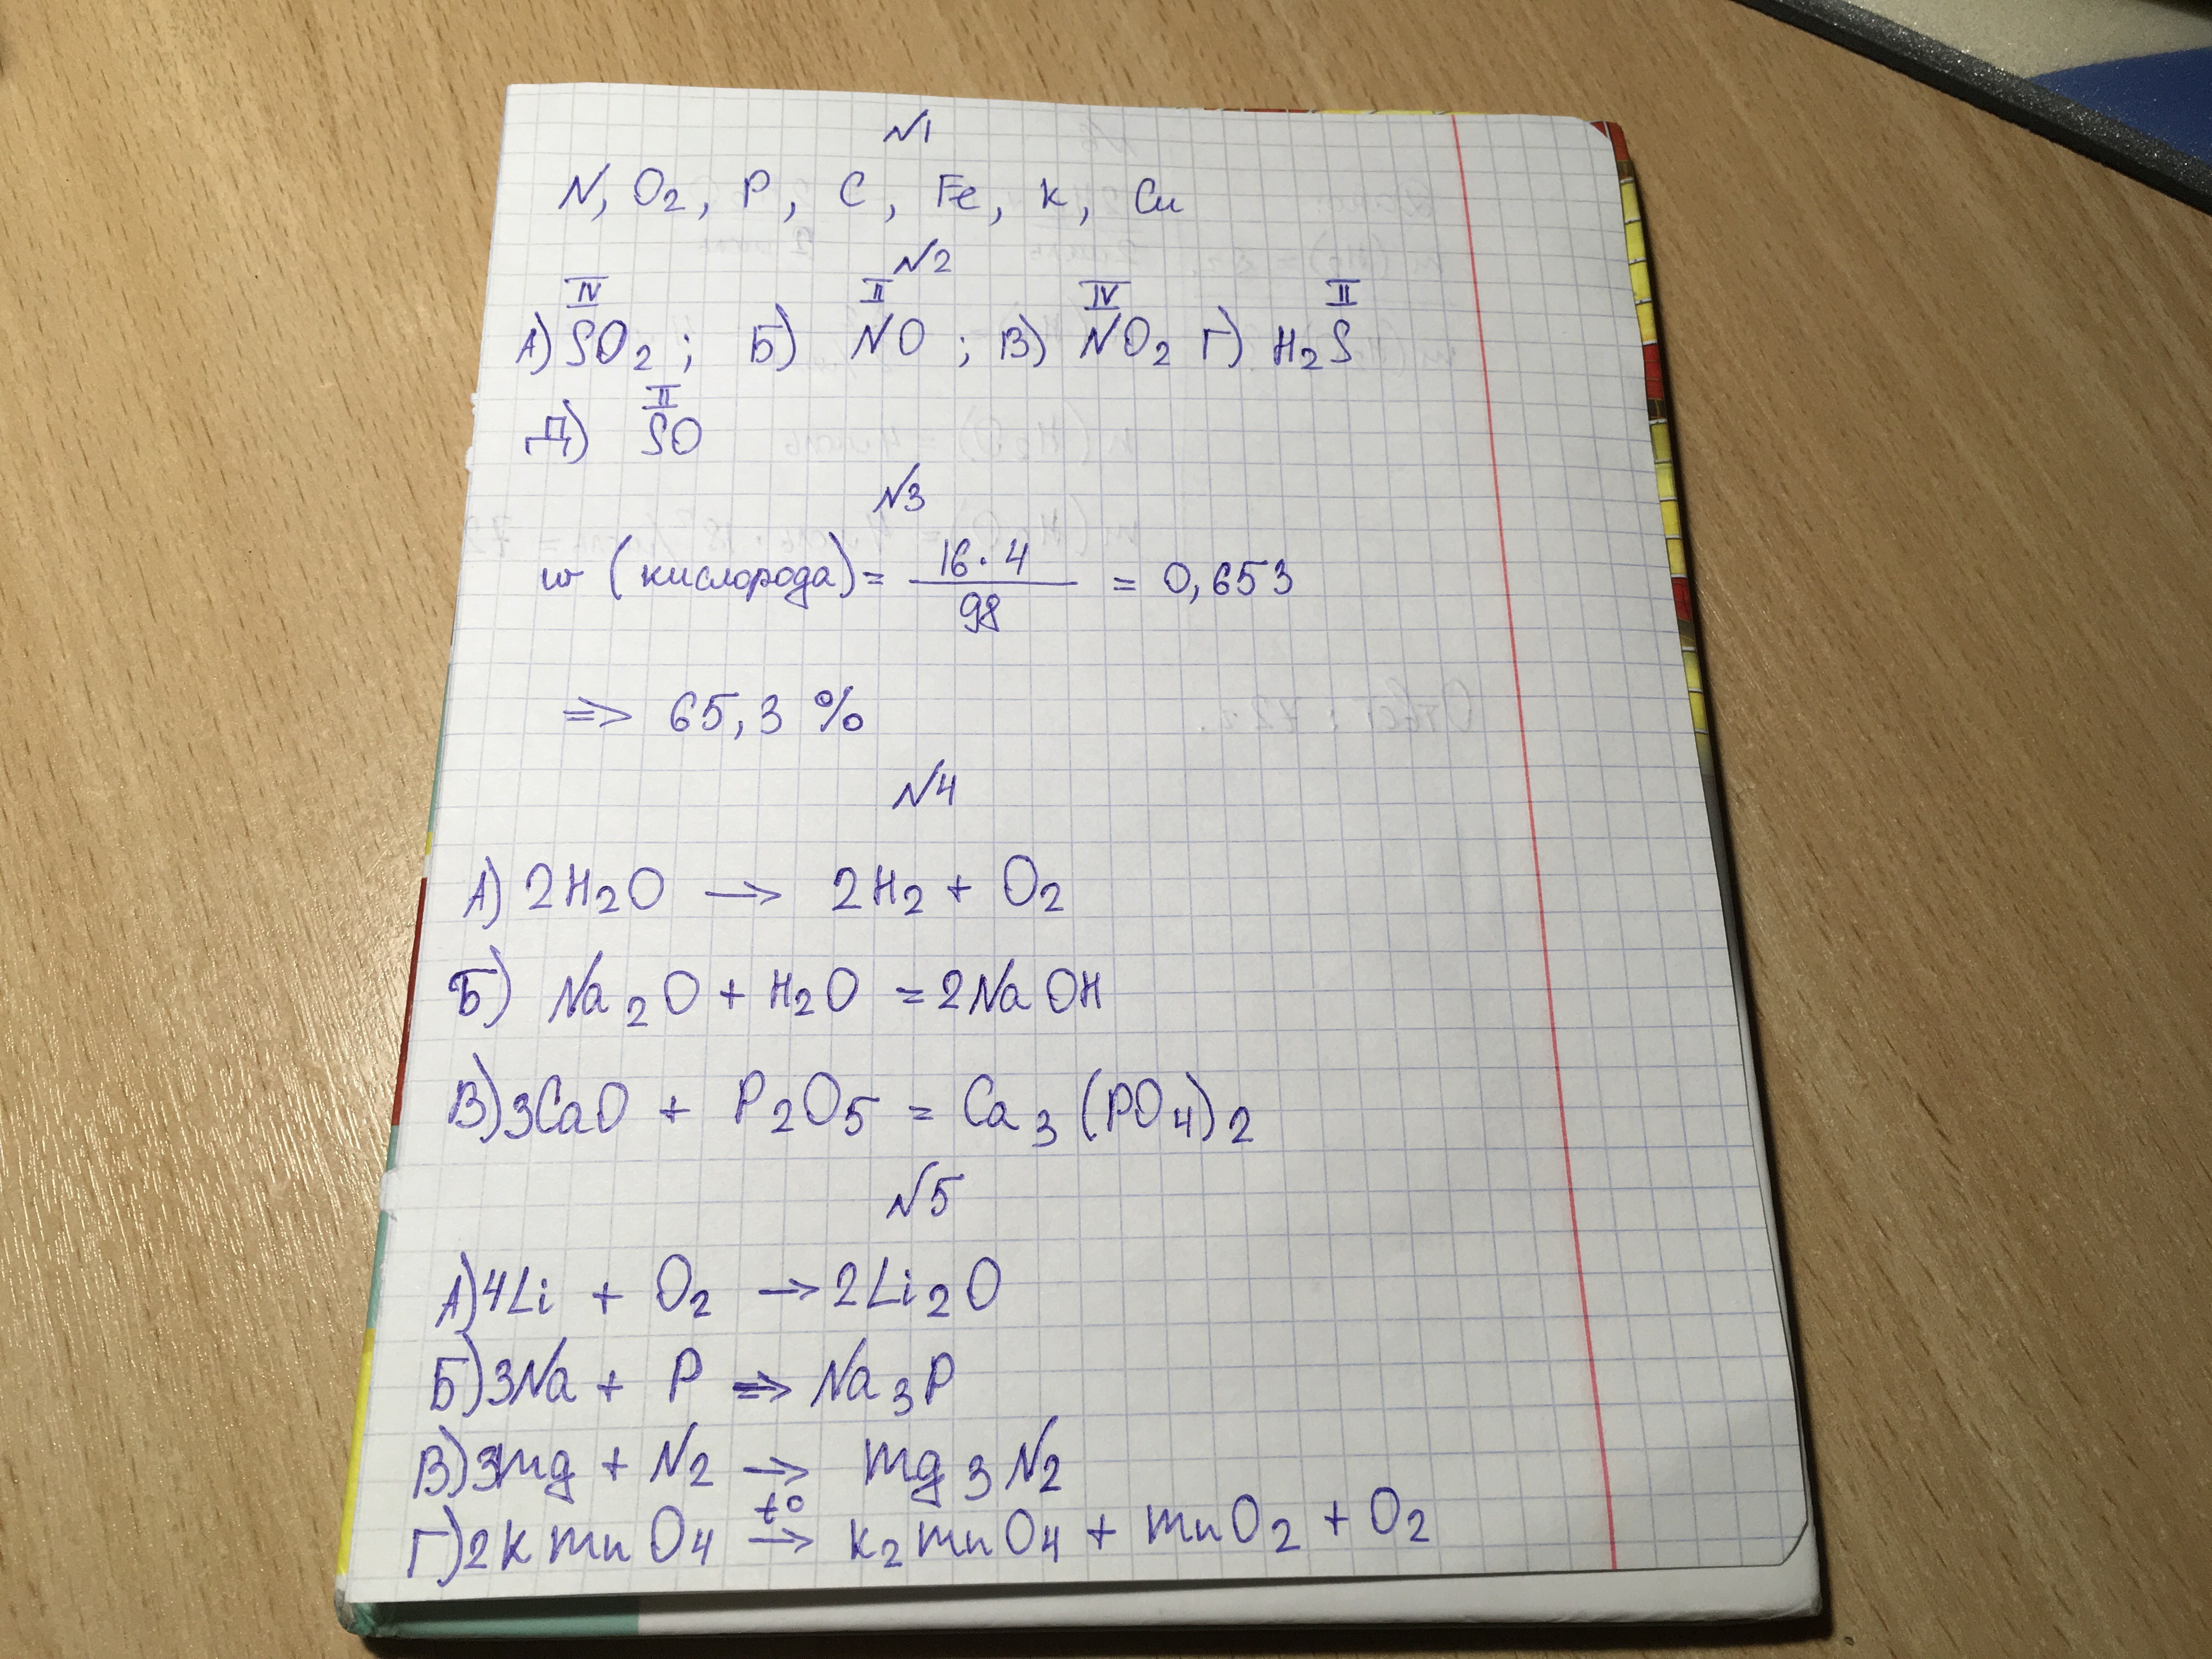 №1
N, O2, P, C, Fe, K, Cu
№2
IV II IV II
А) SO2; Б) NO; В) NO2 Г) H2S
II
Д) SO
№3
w (кислорода) = 16·4 / 98 = 0,653
=> 65,3 %
№4
А) 2H2O → 2H2 + O2
Б) Na2O + H2O = 2NaOH
В) 3CaO + P2O5 = Ca3(PO4)2
№5
А) 4Li + O2 → 2Li2O
Б) 3Na + P => Na3P
В) 3mg + N2 → mg3N2
t°
Г) 2KmnO4 → K2mnO4 + mnO2 + O2